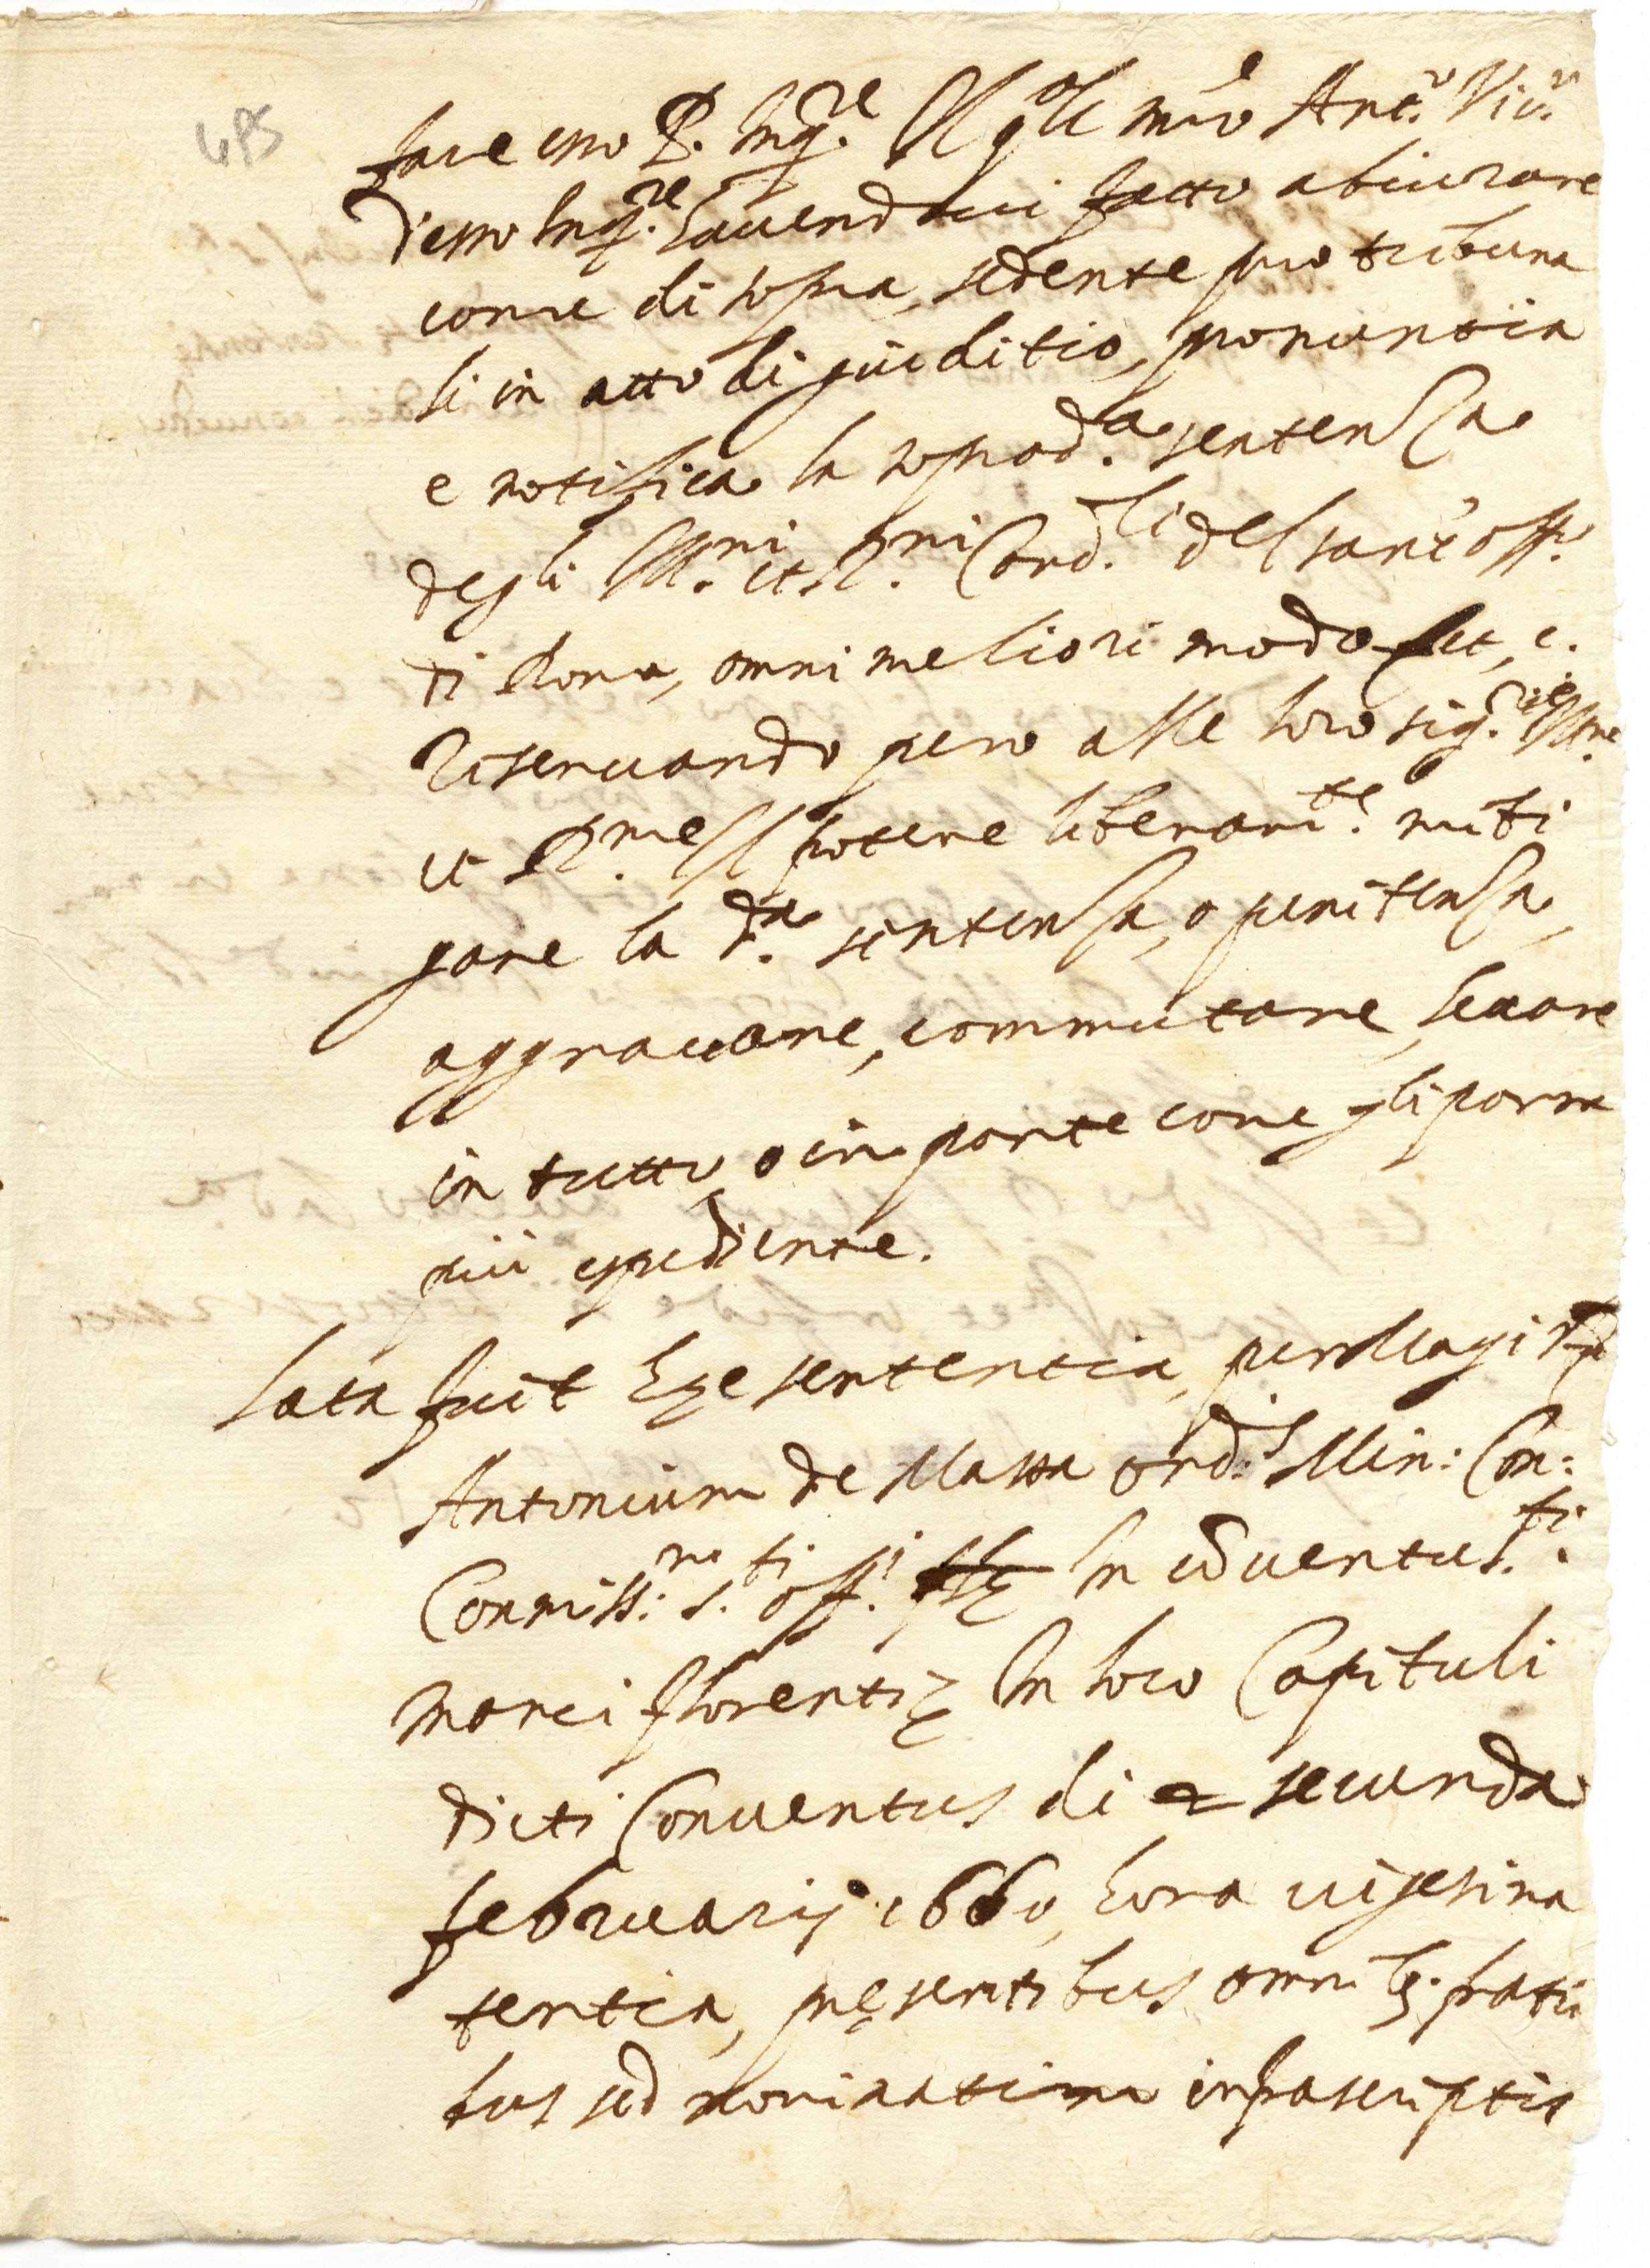 495
fare esso P. Inq.re Il q.le mro Ant.o Vic.o
di esso Inq.re havendolui fatto abiurare
come di sopra, sedente pro tribuna
li in atto di giuditio, pronuntia
e notifica la soprad.a sentenza
degli Ill.mi et R.mi Card.li del Sant'Off.o
di Roma, omni meliori modo et, c.
riservando pero alle loro sig.rie Ill.me
et R.me Il potere liberam.te miti
gare la d.a sentenza, o penitenza,
aggravare, commutare, levare
in tutto, o in parte come gli parrà
più espediente.
Lata fuit hęc sententia, per Magistrũ
Antonium de Massa ord.s Min: Con:
Commiss.m S.ti Off.i In cõventu S.ti
Marci Florentię In loco Capituli
dicti Conventus di secunda
februarij 1660, hora vigesima
tertia, pręsentibus omnibq. fratri
bus sed nominatim infrascriptis